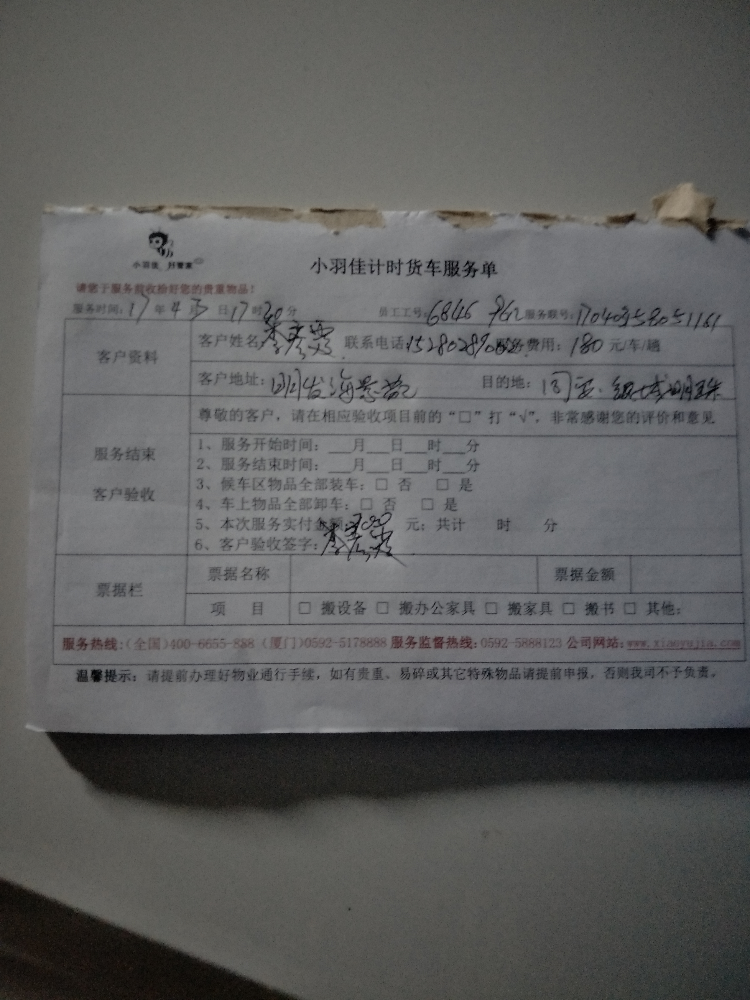 小羽佳 好管家
小羽佳计时货车服务单
请您于服务前收捡好您的贵重物品!
服务时间:17年4月 日17时20分 员工工号:6846 962 服务账号:
客户资料
客户姓名 联系电话: 服务费用:180元/车/趟
客户地址:明发海景苑 目的地:同安.银城明珠
服务结束
客户验收
尊敬的客户,请在相应验收项目前的“□”打“√”,非常感谢您的评价和意见
1、服务开始时间:___月___日___时___分
2、服务结束时间:___月___日___时___分
3、候车区物品全部装车:□ 否 □ 是
4、车上物品全部卸车:□ 否 □ 是
5、本次服务实付金额: 元;共计 时 分
6、客户验收签字:
票据栏
票据名称 票据金额
项 目 □ 搬设备 □ 搬办公家具 □ 搬家具 □ 搬书 □ 其他:
服务热线:(全国)400-6655-888 (厦门)0592-5178888 服务监督热线:0592-5888123 公司网站:www.xiaoyujia.com
温馨提示:请提前办理好物业通行手续,如有贵重、易碎或其它特殊物品请提前申报,否则我司不予负责。